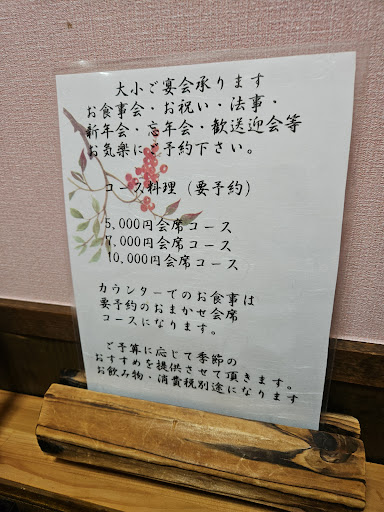 大小ご宴会承ります
お食事会・お祝い・法事・
新年会・忘年会・歓送迎会等
お気楽にご予約下さい。
コース料理（要予約）
5,000円会席コース
7,000円会席コース
10,000円会席コース
カウンターでのお食事は
要予約のおまかせ会席
コースになります。
ご予算に応じて季節の
おすすめを提供させて頂きます。
お飲み物・消費税別途になります